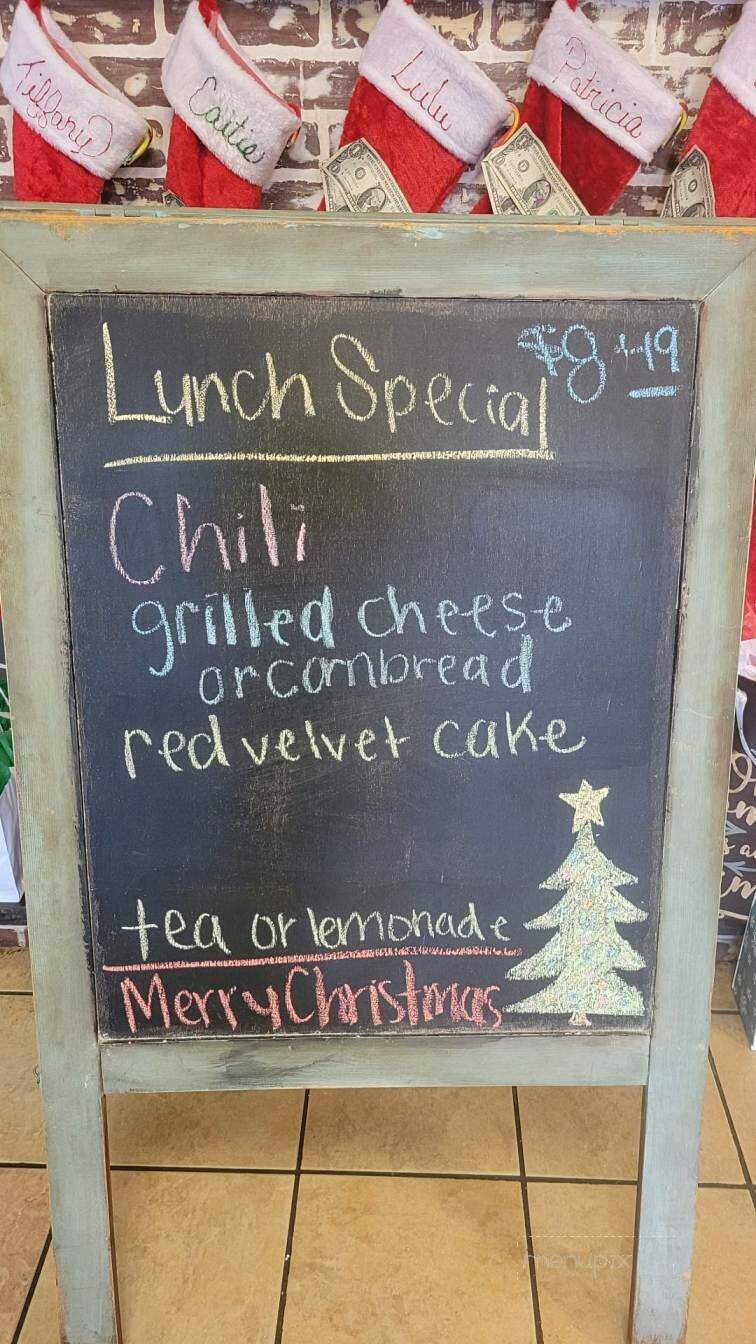 Tiffany
Caitie
Lulu
Patricia
Lunch Special
$8.49
Chili
grilled cheese
or cornbread
red velvet cake
tea or lemonade
Merry Christmas
menupix